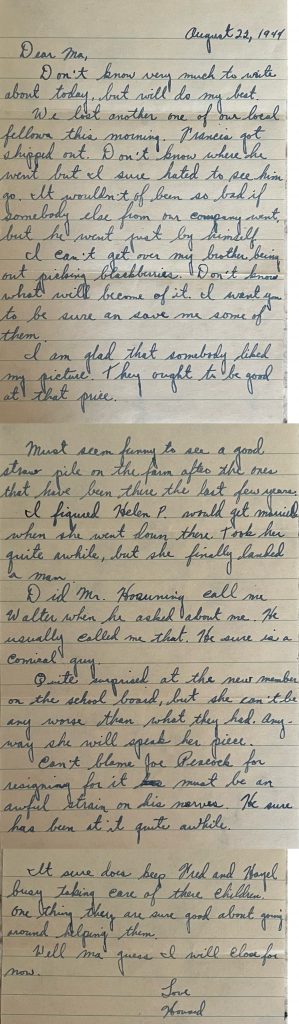 August 22, 1944
Dear Ma,
Don't know very much to write
about today, but will do my best.
We lost another one of our local
fellows this morning. Francis got
shipped out. Don't know where he
went but I sure hated to see him
go. It wouldn't of been so bad if
somebody else from our company went,
but he went just by himself
I can't get over my brother being
out picking blackberries. Don't know
what will become of it. I want you
to be sure an save me some of
them.
I am glad that somebody liked
my picture. They ought to be good
at that price.
Must seem funny to see a good
straw pile on the farm after the ones
that have been there the last few years
I figured Helen P. would get married
when she went down there. Took her
quite awhile, but she finally landed
a man.
Did Mr. call me
Walter when he asked about me. He
usually called me that. He sure is a
comical guy.
Quite surprised at the new member
on the school board, but she can't be
any worse than what they had. Any-
way she will speak her piece.
Can't blame Joe Peacock for
resigning for it must be an
awful strain on his nerves. He sure
has been at it quite awhile.
It sure does keep Fred and Hazel
busy taking care of there children.
One thing they are sure good about going
around helping them.
Well ma guess I will close for
now.
Love
Howard